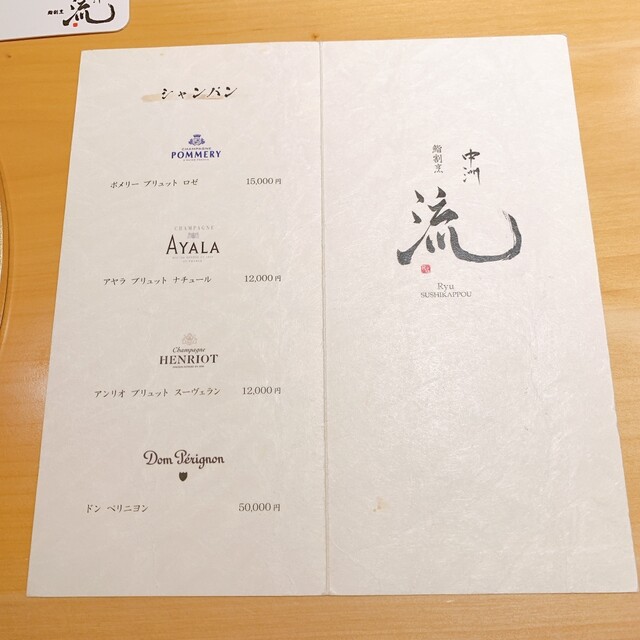 鮨割烹
流
シャンパン
CHAMPAGNE
POMMERY
ポメリー ブリュット ロゼ 15,000円
CHAMPAGNE
AYALA
アヤラ ブリュット ナチュール 12,000円
Champagne
HENRIOT
アンリオ ブリュット スーヴェラン 12,000円
Dom Pérignon
ドン ペリニヨン 50,000円
中洲
鮨割烹
流
Ryu
SUSHIKAPPOU